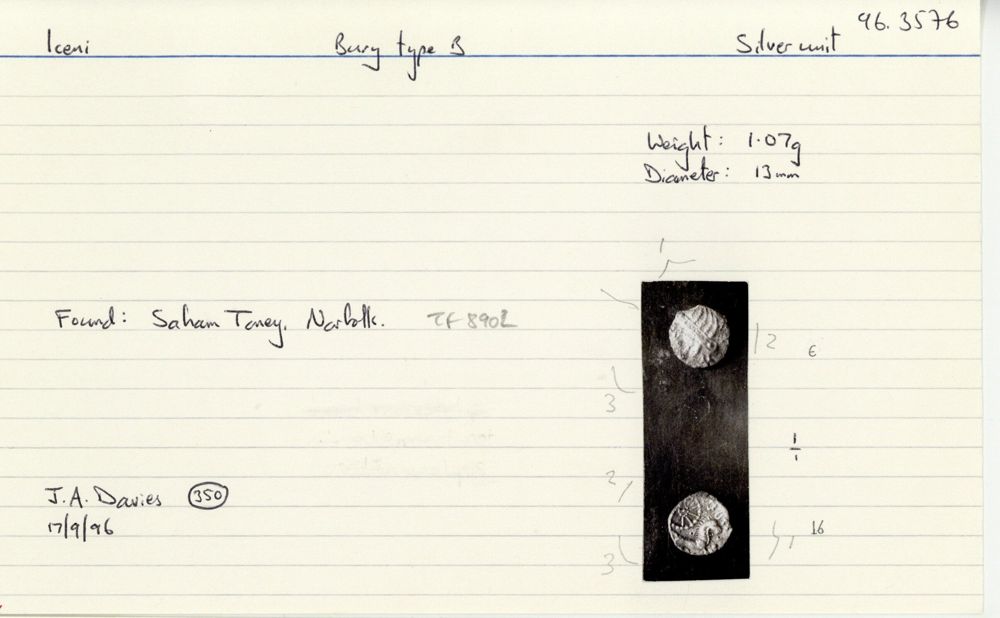 96.3576
Iceni Bury type B Silver unit
Weight: 1.07g
Diameter: 13mm
1
Found: Saham Toney, Norfolk.
2 6
3
1/1
2
J.A. Davies 350
17/9/96
16
3